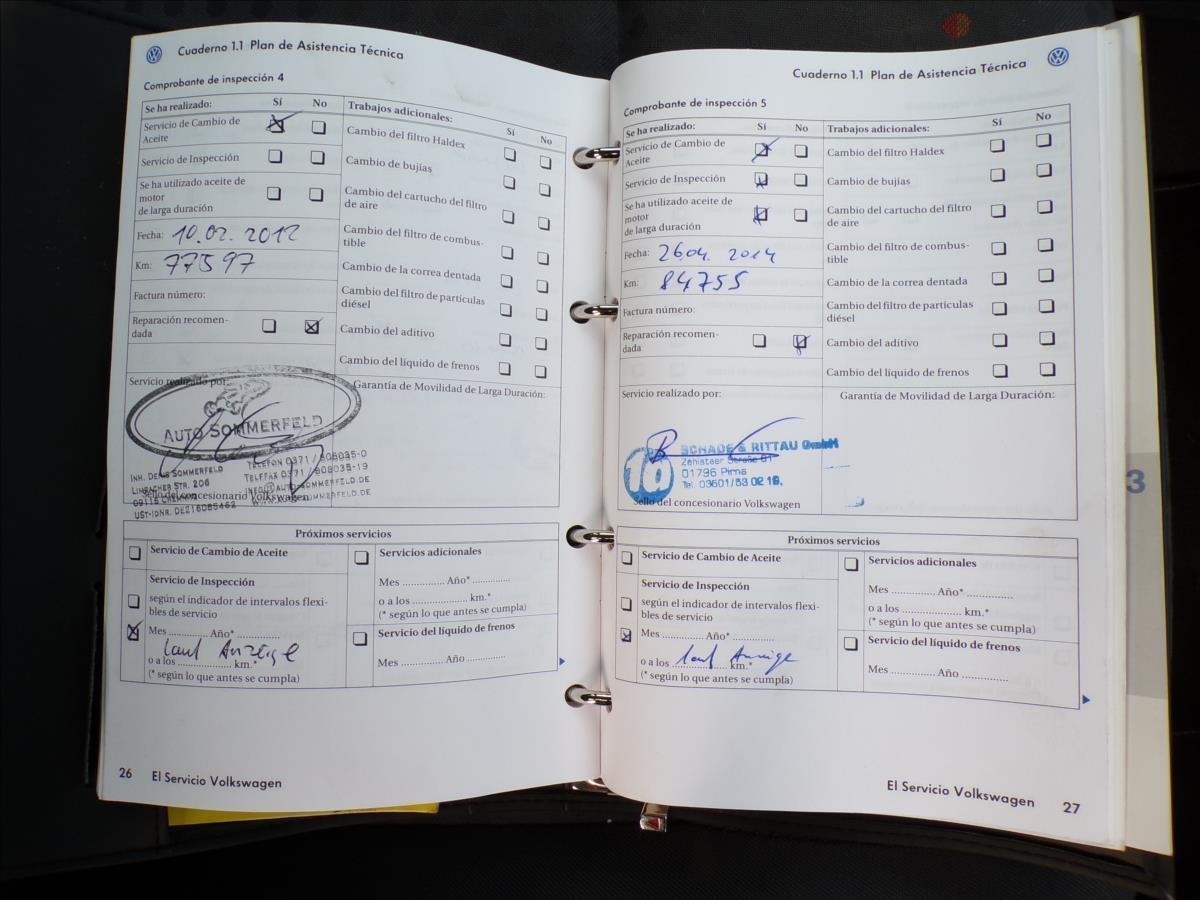 Cuaderno 1.1 Plan de Asistencia Técnica
Comprobante de inspección 4
Se ha realizado: Sí No
Servicio de Cambio de
Aceite
Servicio de Inspección
Se ha utilizado aceite de
motor
de larga duración
Fecha: 10.02.2012
Km: 77597
Factura número:
Reparación recomen-
dada
Trabajos adicionales: Sí No
Cambio del filtro Haldex
Cambio de bujías
Cambio del cartucho del filtro
de aire
Cambio del filtro de combus-
tible
Cambio de la correa dentada
Cambio del filtro de partículas
diésel
Cambio del aditivo
Cambio del líquido de frenos
Servicio realizado por:
AUTO SOMMERFELD
INH. DENIS SOMMERFELD
LIMBACHER STR. 206
09116 CHEMNITZ
UST-IDNR. DE216085462
TELEFON 0371 / 808035-0
TELEFAX 0371 / 808035-19
INFO@AUTO-SOMMERFELD.DE
Sello del concesionario Volkswagen
Garantía de Movilidad de Larga Duración:
Próximos servicios
Servicio de Cambio de Aceite
Servicio de Inspección
según el indicador de intervalos flexi-
bles de servicio
Mes ............. Año* .............
laut Anzeige
o a los ..................... km.*
(* según lo que antes se cumpla)
Servicios adicionales
Mes ............. Año* ............
o a los ..................... km.*
(* según lo que antes se cumpla)
Servicio del líquido de frenos
Mes ............. Año ............
26 El Servicio Volkswagen
Cuaderno 1.1 Plan de Asistencia Técnica
Comprobante de inspección 5
Se ha realizado: Sí No
Servicio de Cambio de
Aceite
Servicio de Inspección
Se ha utilizado aceite de
motor
de larga duración
Fecha: 26.04. 2014
Km: 84755
Factura número:
Reparación recomen-
dada
Trabajos adicionales: Sí No
Cambio del filtro Haldex
Cambio de bujías
Cambio del cartucho del filtro
de aire
Cambio del filtro de combus-
tible
Cambio de la correa dentada
Cambio del filtro de partículas
diésel
Cambio del aditivo
Cambio del líquido de frenos
Servicio realizado por:
SCHADE & RITTAU GmbH
Zehistaer Straße
01796 Pirna
Sello del concesionario Volkswagen
Garantía de Movilidad de Larga Duración:
Próximos servicios
Servicio de Cambio de Aceite
Servicio de Inspección
según el indicador de intervalos flexi-
bles de servicio
Mes ............. Año* .............
laut Anzeige
o a los ..................... km.*
(* según lo que antes se cumpla)
Servicios adicionales
Mes ............. Año* .............
o a los ..................... km.*
(* según lo que antes se cumpla)
Servicio del líquido de frenos
Mes ............. Año .............
El Servicio Volkswagen 27
3